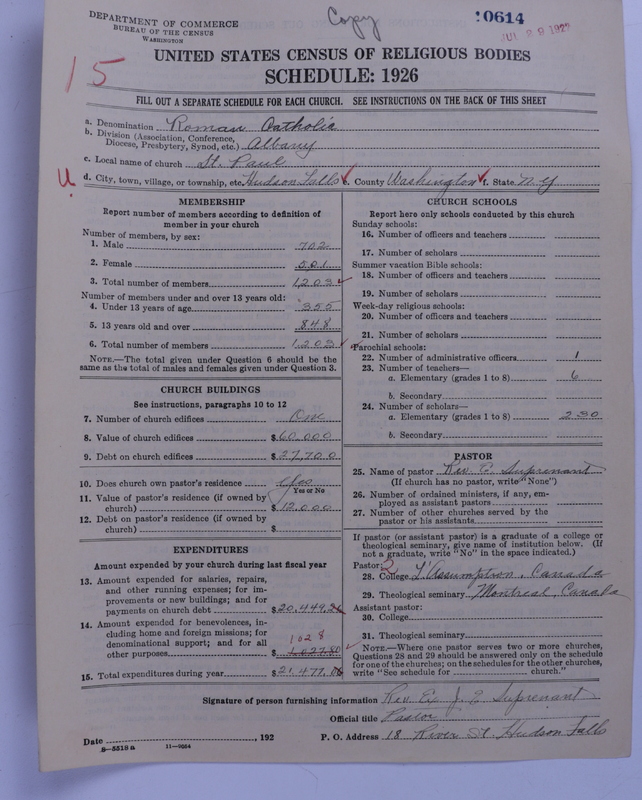 DEPARTMENT OF COMMERCE
BUREAU OF THE CENSUS
WASHINGTON
Copy
0614
JUL 29 192
15
UNITED STATES CENSUS OF RELIGIOUS BODIES
SCHEDULE: 1926
FILL OUT A SEPARATE SCHEDULE FOR EACH CHURCH. SEE INSTRUCTIONS ON THE BACK OF THIS SHEET
a. Denomination Roman Catholic
b. Division (Association, Conference, Diocese, Presbytery, Synod, etc.) Albany
c. Local name of church St. Paul
U.
d. City, town, village, or township, etc. Hudson Falls e. County Washington f. State N.Y
MEMBERSHIP
Report number of members according to definition of
member in your church
Number of members, by sex:
1. Male 702
2. Female 501
3. Total number of members 1203
Number of members under and over 13 years old:
4. Under 13 years of age 355
5. 13 years old and over 848
6. Total number of members 1203
NOTE.—The total given under Question 6 should be the
same as the total of males and females given under Question 3.
CHURCH BUILDINGS
See instructions, paragraphs 10 to 12
7. Number of church edifices One
8. Value of church edifices $60,000
9. Debt on church edifices $27,700
10. Does church own pastor's residence Yes
Yes or No
11. Value of pastor's residence (if owned by
church) $12,000
12. Debt on pastor's residence (if owned by
church) $
EXPENDITURES
Amount expended by church during last fiscal year
13. Amount expended for salaries, repairs,
and other running expenses; for im-
provements or new buildings; and for
payments on church debt $20,449.
14. Amount expended for benevolences, in-
cluding home and foreign missions; for
denominational support; and for all
1028
other purposes $1,027.80
15. Total expenditures during year $21,477.
CHURCH SCHOOLS
Report here only schools conducted by this church
Sunday schools:
16. Number of officers and teachers
17. Number of scholars
Summer vacation Bible schools:
18. Number of officers and teachers
19. Number of scholars
Week-day religious schools:
20. Number of officers and teachers
21. Number of scholars
Parochial schools:
22. Number of administrative officers 1
23. Number of teachers—
a. Elementary (grades 1 to 8) 6
b. Secondary
24. Number of scholars—
a. Elementary (grades 1 to 8) 230
b. Secondary
PASTOR
25. Name of pastor Rev. E. Suprenant
(If church has no pastor, write "None")
26. Number of ordained ministers, if any, em-
ployed as assistant pastors
27. Number of other churches served by the
pastor or his assistants
If pastor (or assistant pastor) is a graduate of a college or
theological seminary, give name of institution below. (If
not a graduate, write "No" in the space indicated.)
Pastor: 2
28. College L'Assumption, Canada
29. Theological seminary Montreal, Canada
Assistant pastor:
30. College
31. Theological seminary
NOTE.—Where one pastor serves two or more churches,
Questions 28 and 29 should be answered only on the schedule
for one of the churches; on the schedules for the other churches,
write "See schedule for church."
Signature of person furnishing information Rev. E. J. E Suprenant
Official title Pastor
Date , 192 P. O. Address 18 River St. Hudson Falls
8—5518a 11—9054